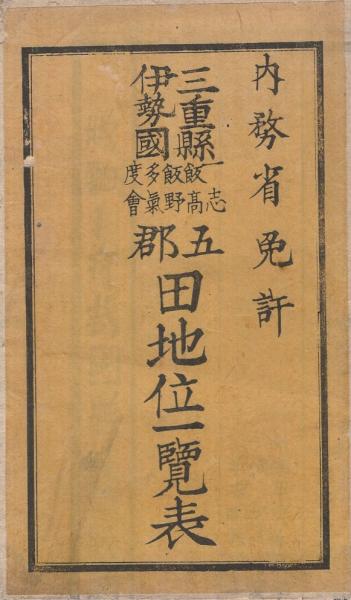 内務省免許
三重縣
伊勢國
一志
飯高
飯野
多氣
度會
五郡
田地位一覽表